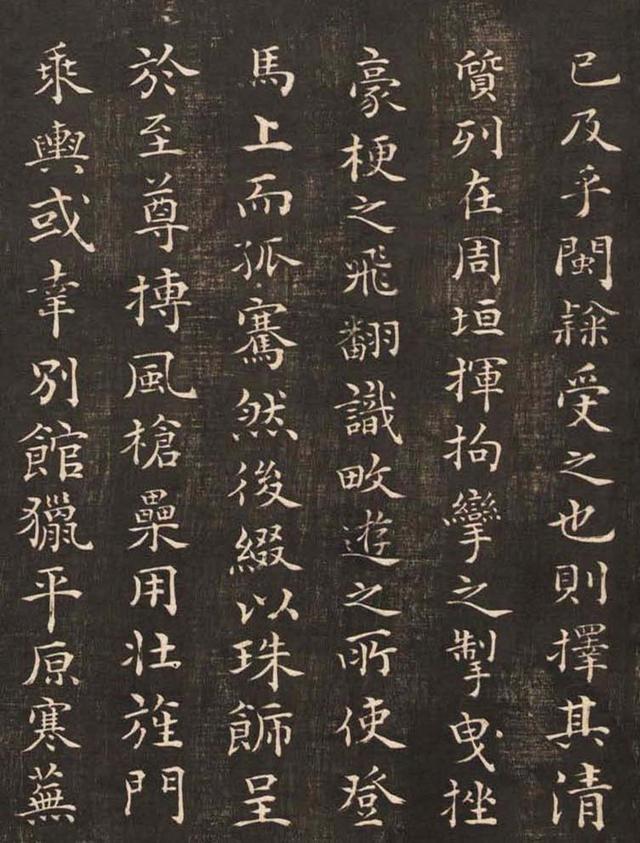 已及乎閩隸受之也則擇其清
質列在周垣揮拘攣之掣曳挫
豪梗之飛翻識畋遊之所使登
馬上而孤騫然後綴以珠飾呈
於至尊搏風槍纍用壯旌門
乘輿或幸別館獵平原寒蕪